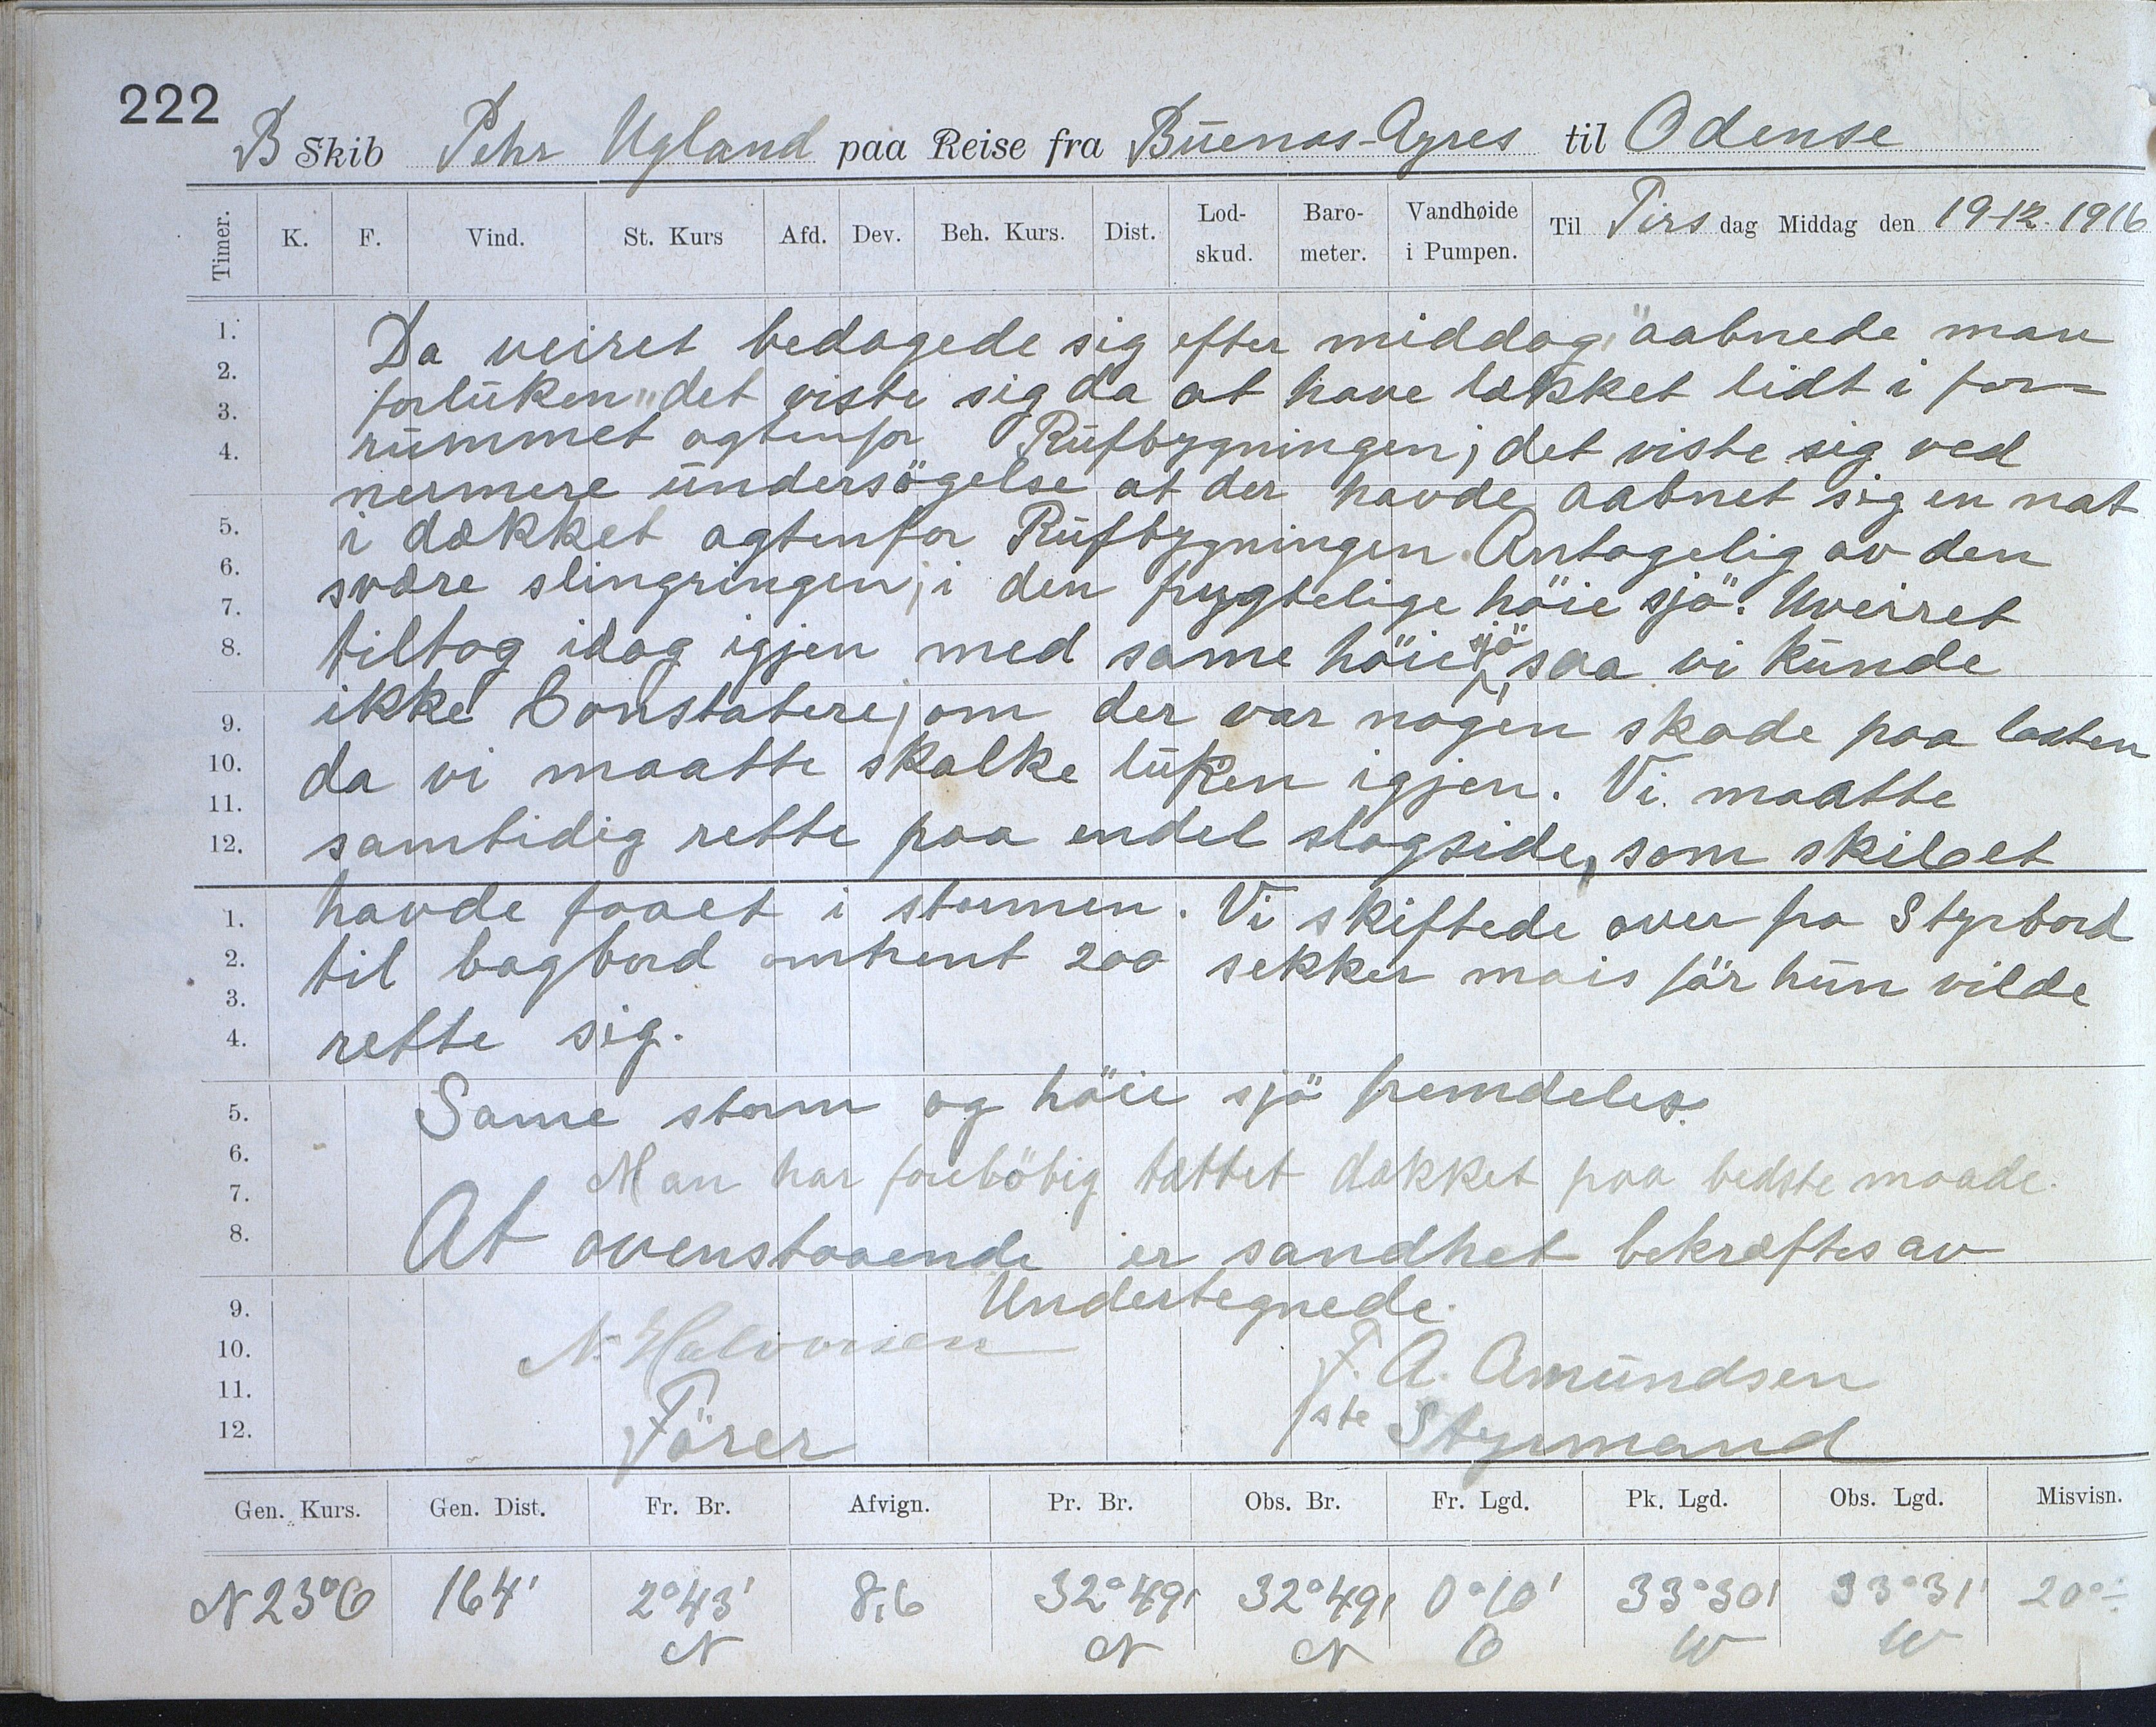 222
B Skib Pehr Ugland paa Reise fra Buenos-Ayres til Odense
Timer. K. F. Vind. St. Kurs Afd. Dev. Beh. Kurs. Dist. Lod-skud. Baro-meter. Vandhøide i Pumpen. Til Tirs dag Middag den 19-12-1916
1.
2.
3.
4.
5.
6.
7.
8.
9.
10.
11.
12.
Da veiret bedagede sig efter middag, aabnede man
forluken, det viste sig da at have lækket lidt i for=
rummet agtenfor Rufbygningen; det viste sig ved
nermere undersögelse at der havde aabnet sig en nat
i dækket agtenfor Rufbygningen. Antagelig av den
svære slingringen; i den frygtelige höie sjö. Uveiret
tiltog idag igjen med same höie sjö, saa vi kunde
ikke Constatere, om der var nogen skade paa lasten
da vi maatte skalke luken igjen. Vi maatte
samtidig rette paa endel slagside, som skibet
1.
2.
3.
4.
5.
6.
7.
8.
9.
10.
11.
12.
havde faaet i stormen. Vi skiftede over fra Styrbord
til bagbord omtrent 200 sekker mais för hun vilde
rette sig.
Same storm og höie sjö fremdeles.
Man har forelöbig tættet dækket paa bedste maade.
At ovenstaaende er sandhet bekræftes av
Undertegnede.
N. Halvorsen F. A. Amundsen
Förer 1ste Styrmand
Gen. Kurs. Gen. Dist. Fr. Br. Afvign. Pr. Br. Obs. Br. Fr. Lgd. Pk. Lgd. Obs. Lgd. Misvisn.
N 23° O 164' 2°43' N 8,6 32°49' N 32°49' N 0°10' O 33°30' W 33°31' W 20°÷